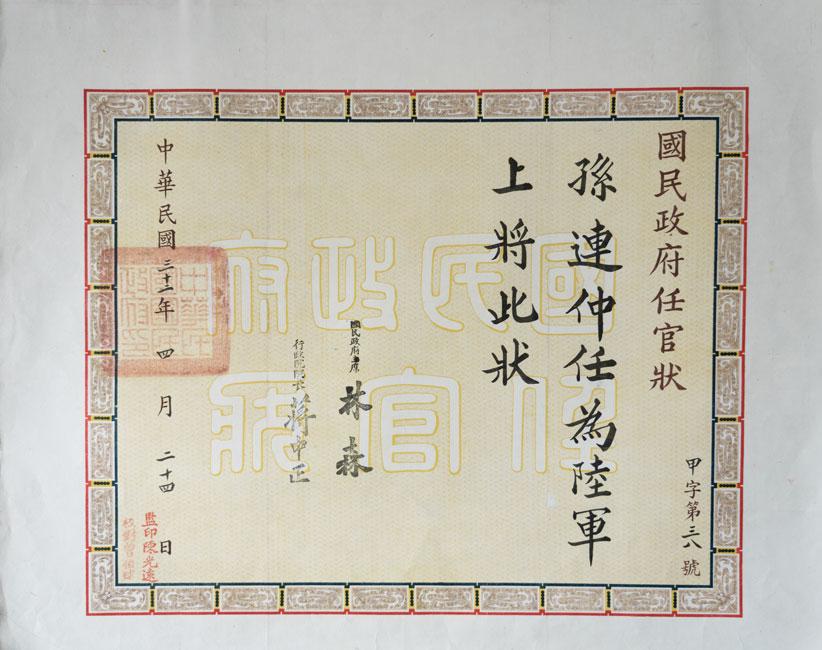 國民政府任官狀
甲字第三八號
孫連仲任為陸軍
上將此狀
國民政府主席
林森
行政院院長
蔣中正
中華民國三十二年四月二十四日
監印陳光遠
校對曾
國民政府
任官狀